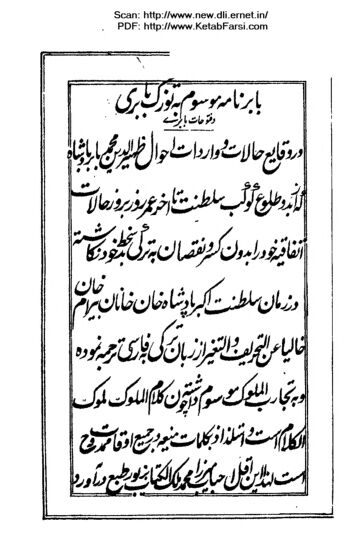 Scan: http://www.new.dli.ernet.in/
PDF: http://www.KetabFarsi.com
بابرنامه موسوم به توزک بابری
و فتوحات بابری
در وقایع حالات و واردات احوال ظهیرالدین محمد بابر پادشاه
که از بدو طلوع کوکب سلطنت تا آخر عمر روز بروز حالات
اتفاقیه خود را بدون کسر و نقصان به ترکی بخط خود نگاشته
در زمان سلطنت اکبر پادشاه خان خانان بیرام خان
خالیا عن التحریف و التغیر از زبان ترکی بفارسی ترجمه نموده
و به تجارب الملوک موسوم داشته چون کلام الملوک ملوک
الکلام است و استلذاذ بکلمات منیعه در جمیع اوقات ممدوح
است لهذا این اقل احباب میرزا محمد ملک الکتاب بزیور طبع درآورد